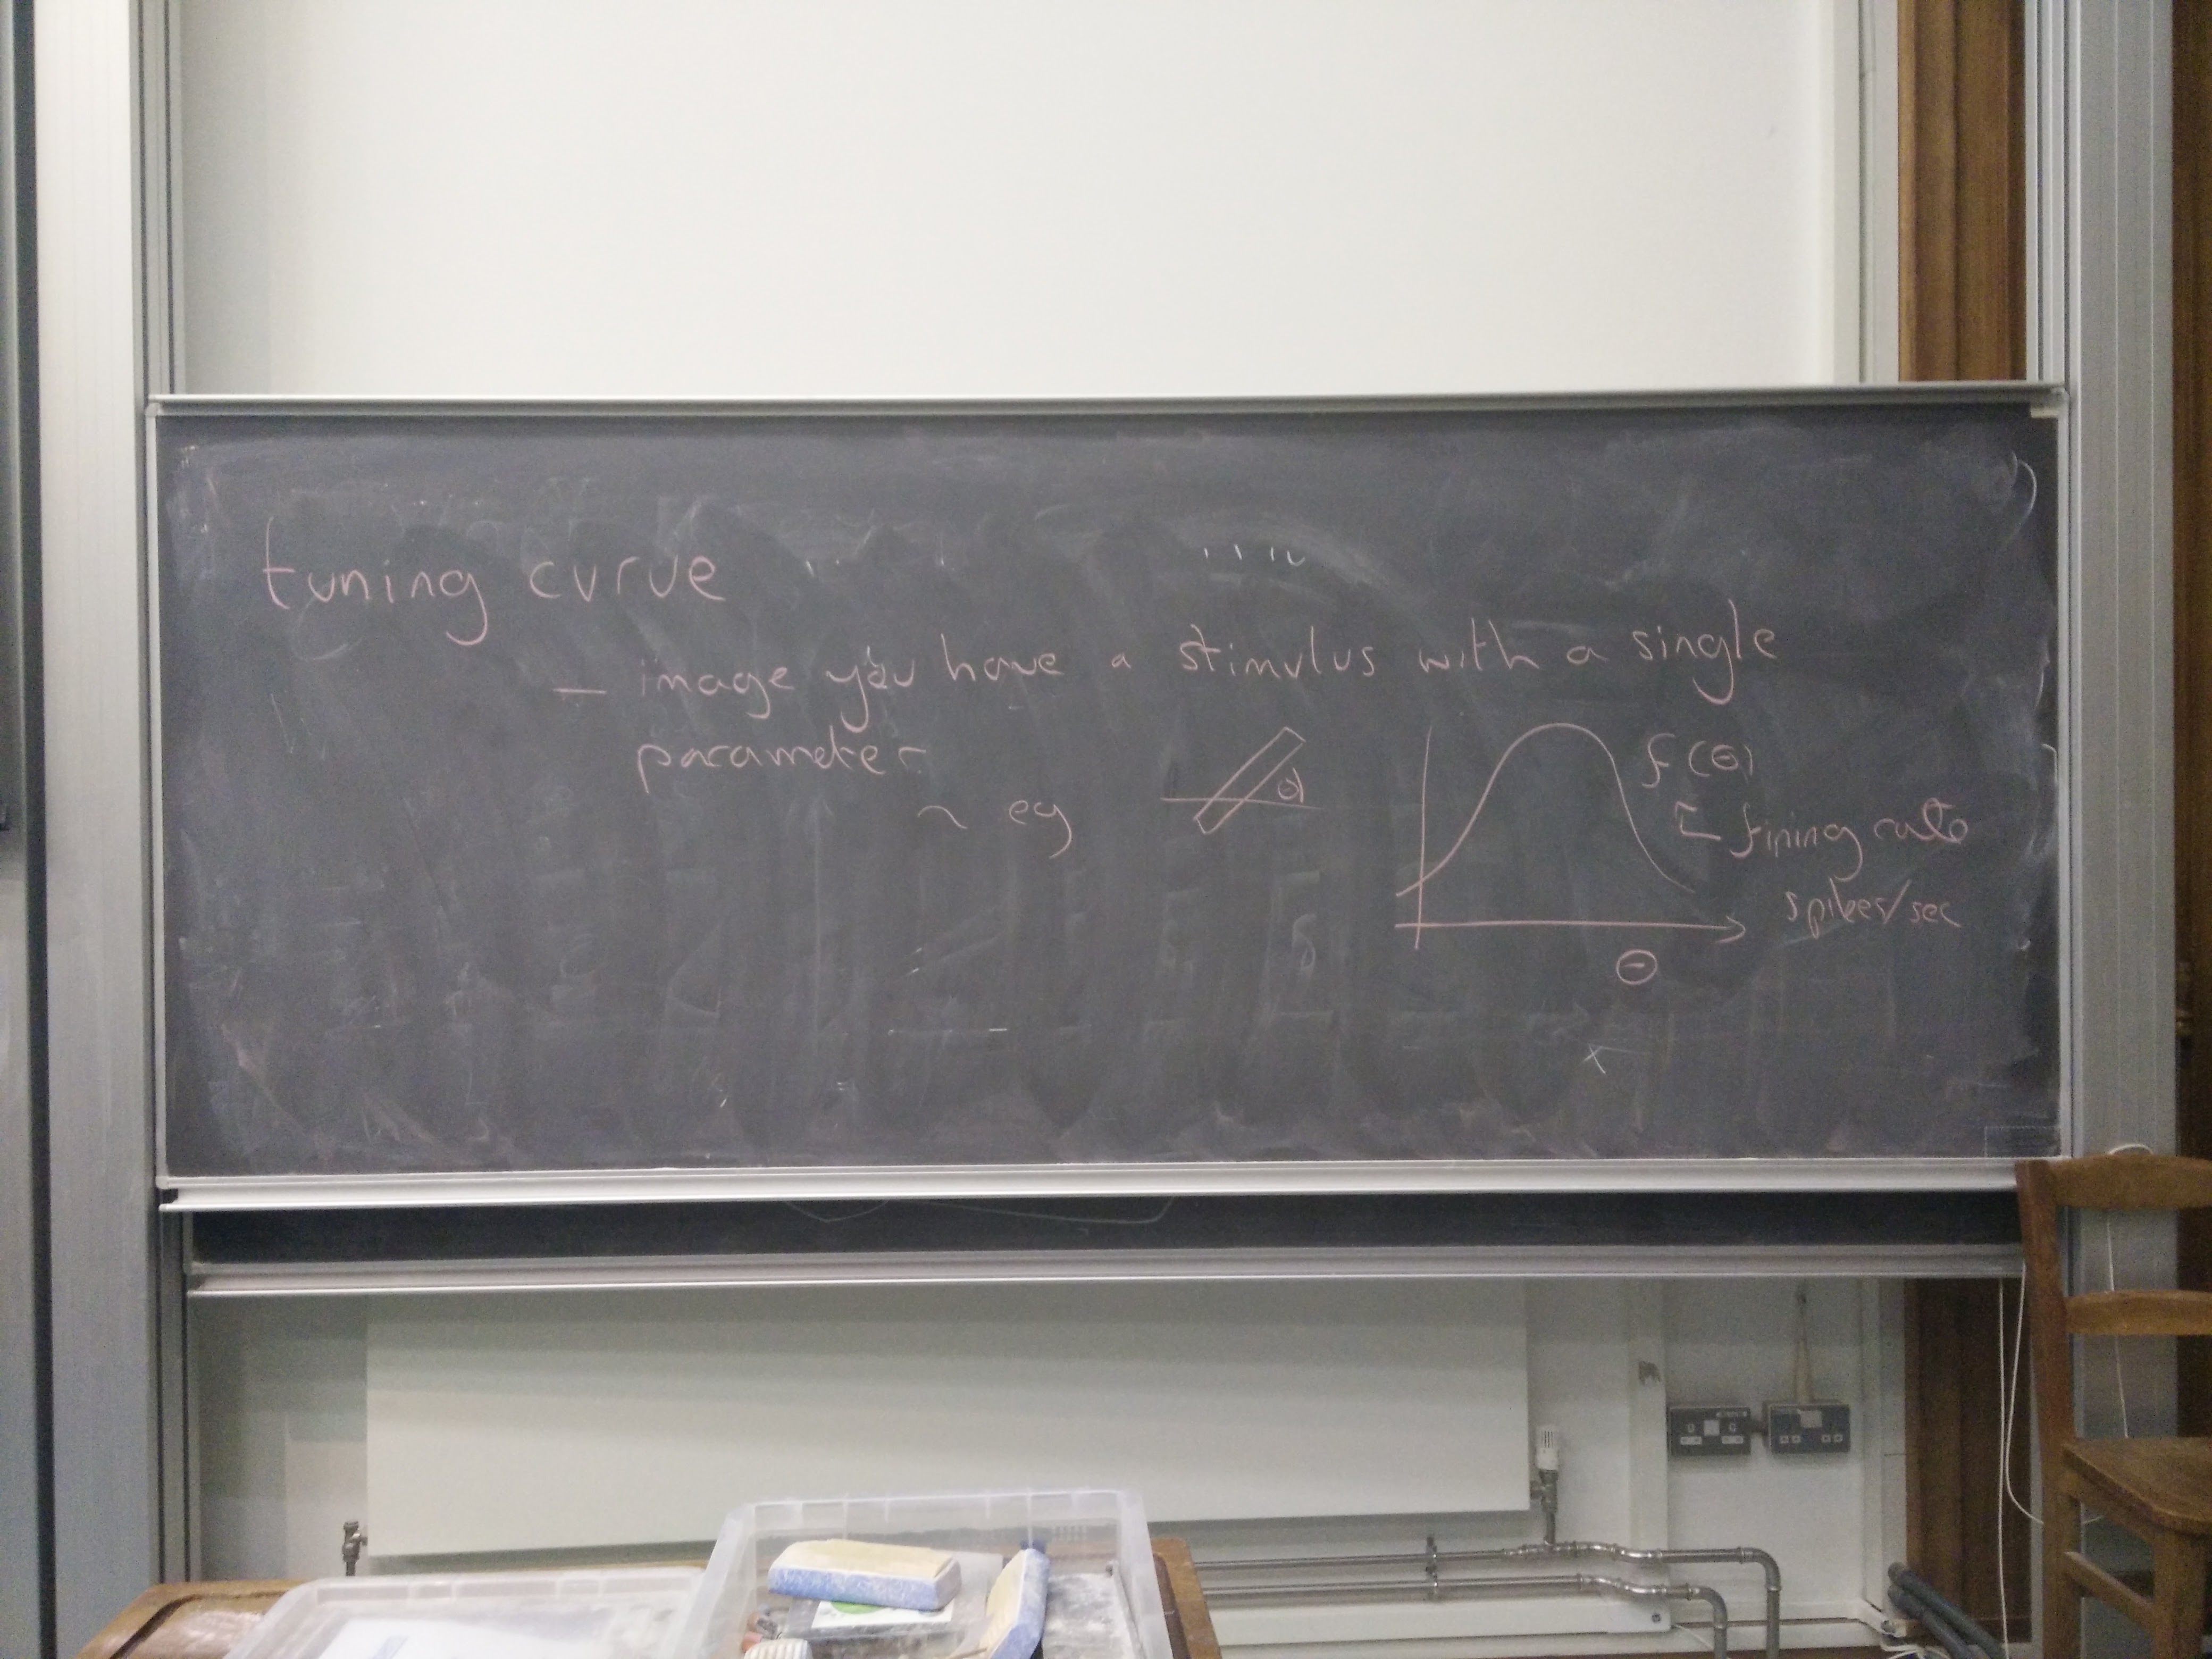 tuning curve
— image you have a stimulus with a single
parameter
~ eg
θ
f(θ)
firing rate
spikes/sec
θ